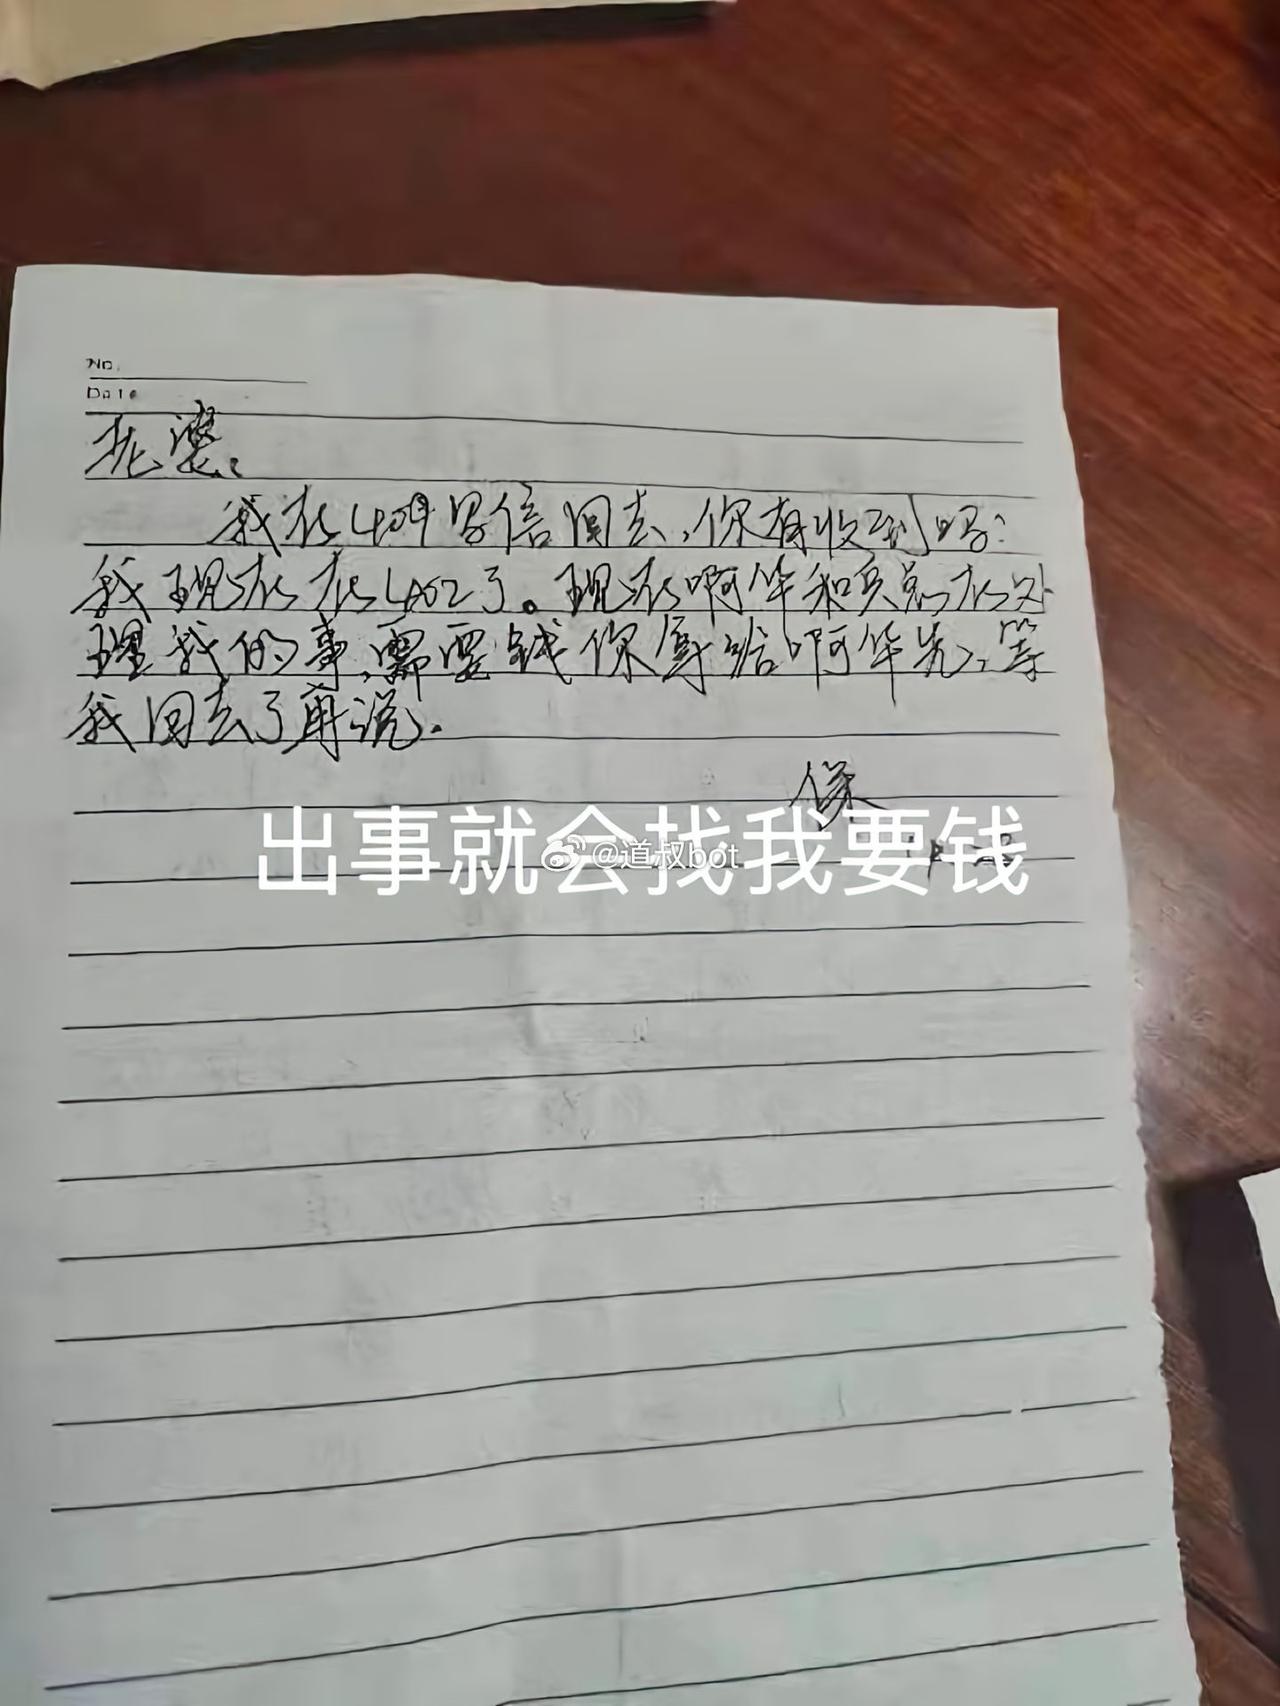 No.
Date
老婆、
我在409写信回去，你有收到吗？
我现在在402了。现在啊华和兵总在处
理我的事，需要钱你身给啊华先，等
我回去了再说。
保
出事就会找我要钱
@道叔bot